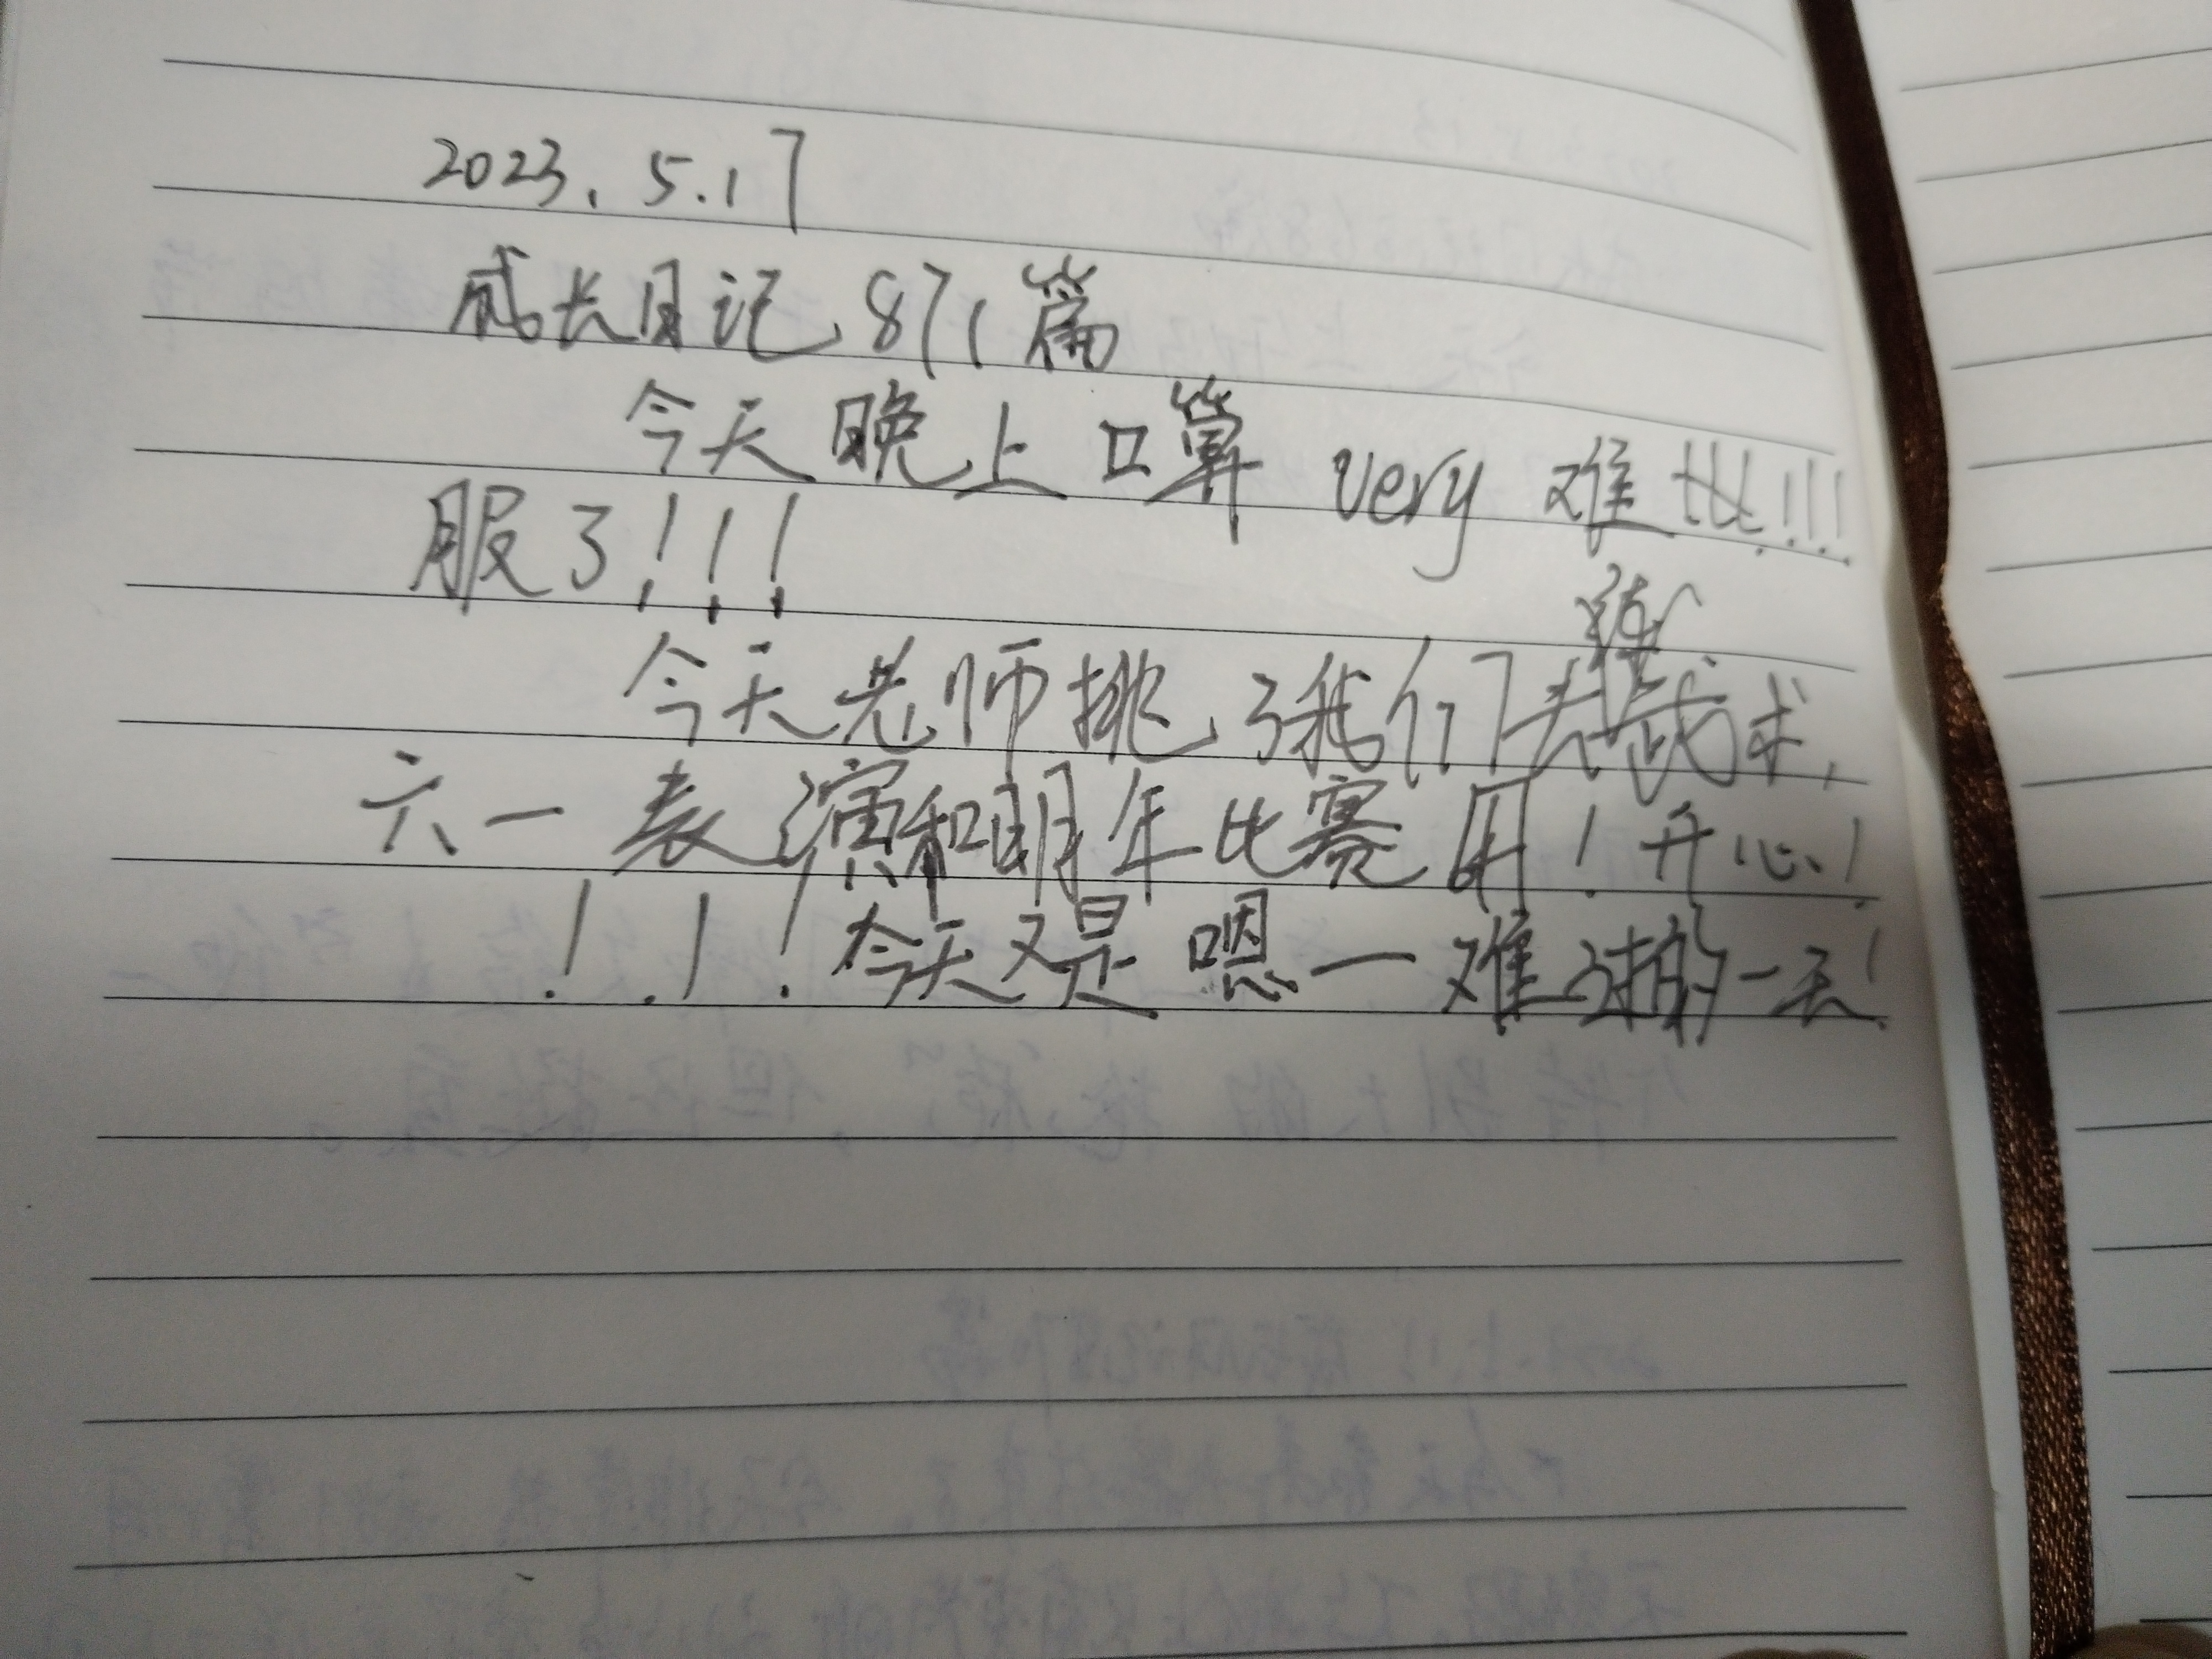 2023.5.17
成长日记871篇
今天晚上口算 very 难!!!!!!
服了!!!
今天老师挑了我们去练武术,
六一表演和明年比赛用!开心!
!!!今天又是嗯一难过的一天!